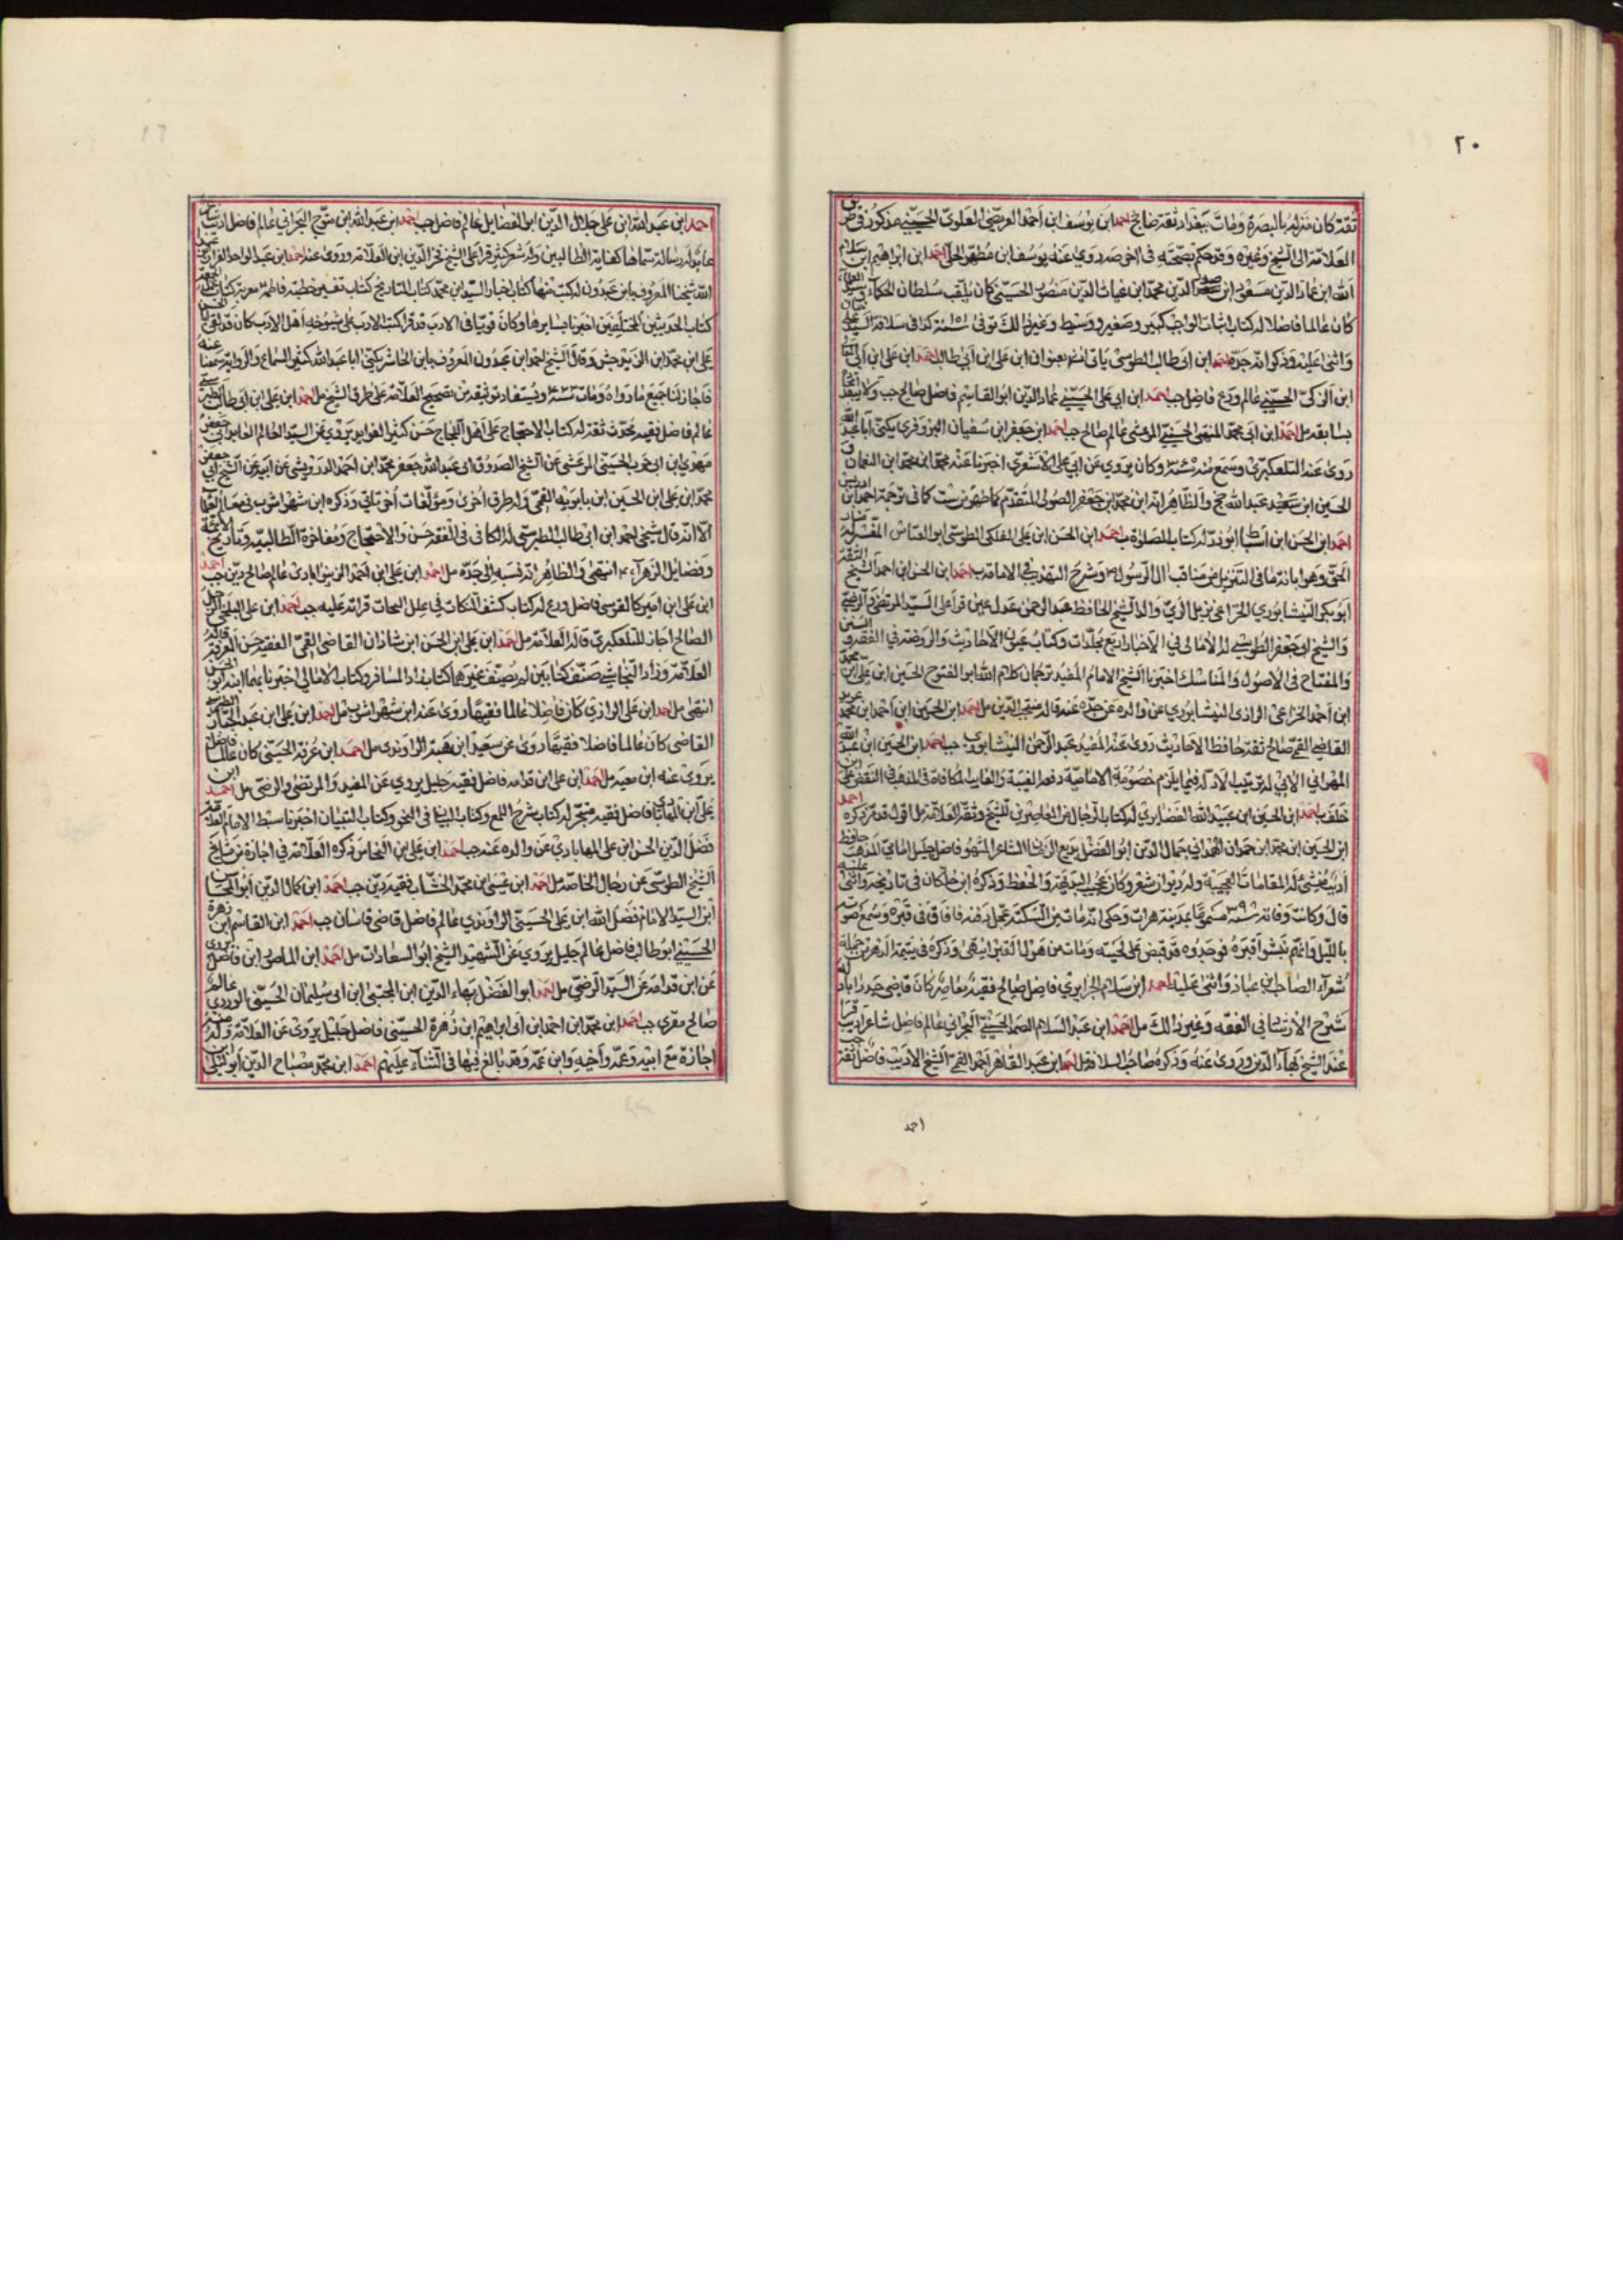 ٢٠
ثقة كان منزله بالبصرة ومات ببغداد ثقة صالح احمد ابن يوسف ابن احمد العريضي العلوي الحسيني مذكور في طرق
العلامة الى الشيخ وغيره وقد حكم بصحته في اخر صدر روى عنه يوسف ابن مطهر الحلي احمد ابن ابراهيم ابن سلام
الله ابن عماد الدين مسعود ابن الدين محمد ابن غياث الدين منصور الحسيني كان يلقب سلطان الحكماء
كان عالما فاضلا له كتاب اثبات الواجب كبير وصغير ووسيط وغير ذلك توفى كذا في سلافة السيد علي
واثنى عليه وذكر انه جده احمد ابن ابي طالب الطوسي ياتي بعنوان ابن علي ابن ابي طالب احمد ابن علي ابن ابي
ابن الزكي الحسيني عالم ورع فاضل جب احمد ابن ابي علي الحسيني عماد الدين ابو القاسم فاضل صالح جب ولا يبعد
بسابقه مل احمد ابن ابي محمد المنتهى الحسيني المرعشي عالم صالح جب احمد ابن جعفر ابن سفيان البزوفري يكنى ابا عبد الله
روى عنه التلعكبري وسمع منه وكان يروي عن ابي علي الاشعري اخبرنا عنه محمد ابن محمد ابن النعمان
الحسين ابن عبيد الله جخ والظاهر انه ابن محمد ابن جعفر الصولي المتقدم كما في ترجمة احمد ابن ادريس
احمد ابن الحسن ابن ابو بدله كتاب الصلوة ب احمد ابن الحسن ابن علي الفلكي الطوسي ابو العباس المفسر له
الحق وهو ابانة ما في التنزيل من مناقب ال الرسول وشرح التهذيب في الامامة ب احمد ابن الحسن ابن احمد الشيخ الثقة
ابو بكر النيشابوري الخزاعي نزيل الري والد الشيخ الحافظ عبد الرحمن عدل عين قرأ على السيد المرتضى والرضي
والشيخ ابي جعفر الطوسي له الامالي في الاخبار اربع مجلدات وكتاب عيون الاحاديث والروضة في الفقه والسنن
والمفتاح في الاصول والمناسك اخبرنا الشيخ الامام المفيد ترجمان كلام الله ابو الفتوح الحسين ابن علي ابن محمد
ابن احمد الخزاعي الرازي النيشابوري عن والده عن جده عنه قاله منتجب الدين مل احمد ابن الحسين ابن احمد ابن محمد
القاضي صالح ثقة حافظ الاحاديث روى عنه المفيد عبد الرحمن النيشابوري جب احمد ابن الحسين ابن عبد الله
المهراني الابي له ترتيب الادلة فيما يلزم خصوم الامامية دفعه الغيبة والغايب المكافاة في المذهب في النقض على ابن
خلف ب احمد ابن الحسين ابن عبيد الله الغضايري له كتاب الرجال من المعاصرين للشيخ وثقه العلامة مل اقول قد مر ذكره احمد
ابن الحسين ابن محمد ابن حمدان الهمداني جمال الدين ابو الفضل بديع الزمان الشاعر المشهور فاضل جليل امامي المذهب حافظ
اديب منشي له المقامات العجيبة وله ديوان شعر وكان عجيب البديهة والحفظ وذكره ابن خلكان في تاريخه واثنى عليه
قال وكانت وفاته مسموما بمدينة هرات وحكى انه مات من السكتة عجل بدفنه فافاق في قبره وسمع صوته
بالليل وانهم نبشوا قبره فوجدوه قد قبض على لحيته ومات من هول القبر انتهى وذكره في يتيمة الدهر من جملة
شعراء الصاحب ابن عباد واثنى عليه احمد ابن سلام الجزايري فاضل صالح فقيه معاصر كان قاضي حيدراباد له
شرح الارشاد في الفقه وغير ذلك مل احمد ابن عبد السلام الحسيني البحراني عالم فاضل شاعر اديب قرا
عند الشيخ بهاء الدين وروى عنه وذكره صاحب السلافة مل احمد ابن عبد القاهر احمد القمي الشيخ الاديب فاضل ثقة جب
احمد
احمد ابن عبد الله ابن علي جلال الدين ابو الفضايل عالم فاضل جب احمد ابن عبد الله ابن متوج البحراني عالم فاضل اديب شاعر
عابد له رسالة سماها كفاية الطالبين وله شعر كثير قرأ على الشيخ فخر الدين ابن العلامة وروى عنه احمد ابن عبد الواحد
الله شيخنا المعروف بابن عبدون له كتب منها كتاب اخبار السيد ابن محمد كتاب التاريخ كتاب تفسير خطبة فاطمة معربة كتاب عمل الجمعة
كتاب الحديثين المختلفين اخبرنا بسايرها وكان قويا في الادب قد قرأ كتب الادب على شيوخه اهل الادب كان قد لقى
علي ابن محمد ابن الزبير جش وقال الشيخ احمد ابن عبدون المعروف بابن الحاشر يكنى ابا عبد الله كثير السماع والرواية سمعنا عنه
فاجاز لنا جميع ما رواه ومات ويستفاد توثيقه من تصحيح العلامة على طرق الشيخ مل احمد ابن علي ابن ابي طالب الطبرسي
عالم فاضل فقيه محدث ثقة له كتاب الاحتجاج على اهل اللجاج حسن كثير الفوايد يروي عن السيد العالم العابد ابي جعفر
مهدي ابن ابي حرب الحسيني المرعشي عن الشيخ الصدوق ابي عبد الله جعفر محمد ابن احمد الدوريستي عن ابيه عن الشيخ ابي جعفر
محمد ابن علي ابن الحسين ابن بابويه القمي وله طرق اخرى ومؤلفات اخر تاتي وذكره ابن شهراشوب في معالم العلماء
الا انه قال شيخي احمد ابن ابي طالب الطبرسي له الكافي في الفقه حسن والاحتجاج ومفاخرة الطالبية وتاريخ الائمة
وفضايل الزهراء انتهى والظاهر انه نسبه الى جده مل احمد ابن علي ابن احمد الزينوابادي عالم صالح دين جب احمد
ابن علي ابن اميركا القوسي فاضل ورع له كتاب كشف النكات في علل النحات قرأنه عليه جب احمد ابن علي البلخي الرجل
الصالح اجاز للتلعكبري قاله العلامة مل احمد ابن علي ابن الحسن ابن شاذان القاضي القمي الفقيه حسن المعرفة قاله
العلامة وزاد النجاشي صنف كتابين لم يصنف غيرهما كتاب زاد المسافر وكتاب الامالي اخبرنا بهما ابنه ابو الحسن
انتهى مل احمد ابن علي الرازي كان فاضلا عالما فقيها روى عنه ابن شهراشوب مل احمد ابن علي ابن عبد الجبار الطبرسي
القاضي كان عالما فاضلا فقيها روى عن سعيد ابن هبة الراوندي مل احمد ابن عرفة الحسيني كان عالما فاضلا
يروى عنه ابن معية مل احمد ابن علي ابن قدامة فاضل فقيه جليل يروي عن المفيد والمرتضى والرضي مل احمد ابن
علي ابن المهابادي فاضل فقيه متبحر له كتاب شرح اللمع وكتاب البيان في النحو وكتاب التبيان اخبرنا سبط الامام العلامة
فضل الدين الحسن ابن علي المهابادي عن والده عنه جب احمد ابن علي ابن النحاس ذكره العلامة في اجازة من مشايخ
الشيخ الطوسي عن رجال الخاصة مل احمد ابن عيسى ابن محمد الخشاب فقيه دين جب احمد ابن كمال الدين ابو المحاسن
ابن السيد الامام فضل الله ابن علي الحسيني الراوندي عالم فاضل قاضي قاسان جب احمد ابن القاسم ابن زهرة
الحسيني ابو طالب فاضل عالم جليل يروي عن الشهيد الشيخ ابو السعادات مل احمد ابن الماصوري ابن فاضل يروى
عن ابن قدامة عن السيد الرضي مل احمد ابو الفضل بهاء الدين ابن المجتبى ابن ابي سليمان الحسيني الوردي عالم
صالح مقري جب احمد ابن محمد ابن احمد ابن ابي ابراهيم ابن زهرة الحسيني فاضل جليل يروى عن العلامة وله منه
اجازة مع ابيه وعمه واخيه وابن عمه وقد بالغ فيها في الثناء عليهم احمد ابن محمد مصباح الدين ابو ليلى